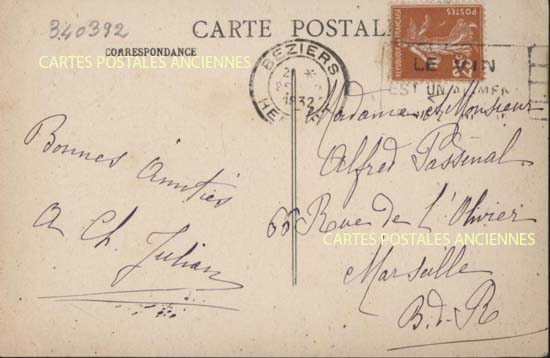 340392
CARTE POSTALE
CORRESPONDANCE
CARTES POSTALES ANCIENNES
BEZIERS
1932
POSTES
REPUBLIQUE FRANÇAISE
LE VIN
EST UN ALIMEN
Bonnes Amitiés
A Ch. Julian
Madame et Monsieur
Alfred
66 Rue de l'Olivier
CARTES POSTALES ANCIENNES
Marseille
B.d.R